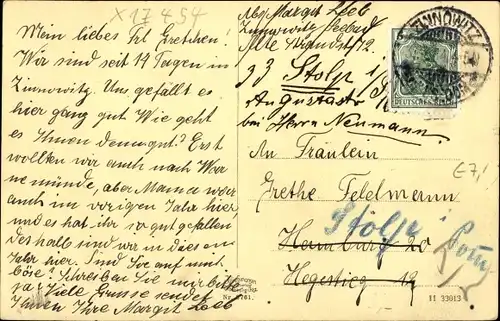 X17454
Mein liebes Frl Gretchen!
Wir sind seit 14 Tagen in
Zinnowitz. Uns gefällt es
hier ganz gut Wie geht
es Ihnen denn gut? Erst
wollten wir auch nach War
nemünde, aber Mama war
auch im vorigen Jahr hier
und es hat ihr so gut gefallen
deshalb sind wir in diesem
Jahr hier. Sind Sie auf mit
böse? Schreiben Sie mir bitte
ja! Viele Grüsse sendet
Ihnen Ihre Margit Loeb
Abs Margit Loeb
Zinnowitz Seebad
Alte Strandstr 12.
ZINNOWITZ
DEUTSCHES REICH
33 Stolp i/
Augustastr
bei Herrn Neumann.
An Fräulein
Grethe Feldmann
Stolp i Pom
Hamburg 20
Hegestieg 12
E7,1
11 33013